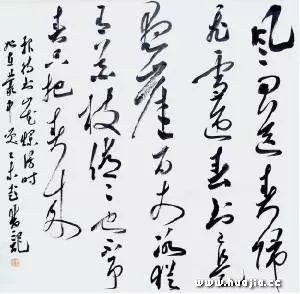 风雨送春归
飞雪迎春到已是
悬崖百丈冰犹
有花枝俏〻也不争
春只把春来
报待到山花烂漫时
她在丛中笑
www.huajia.cc